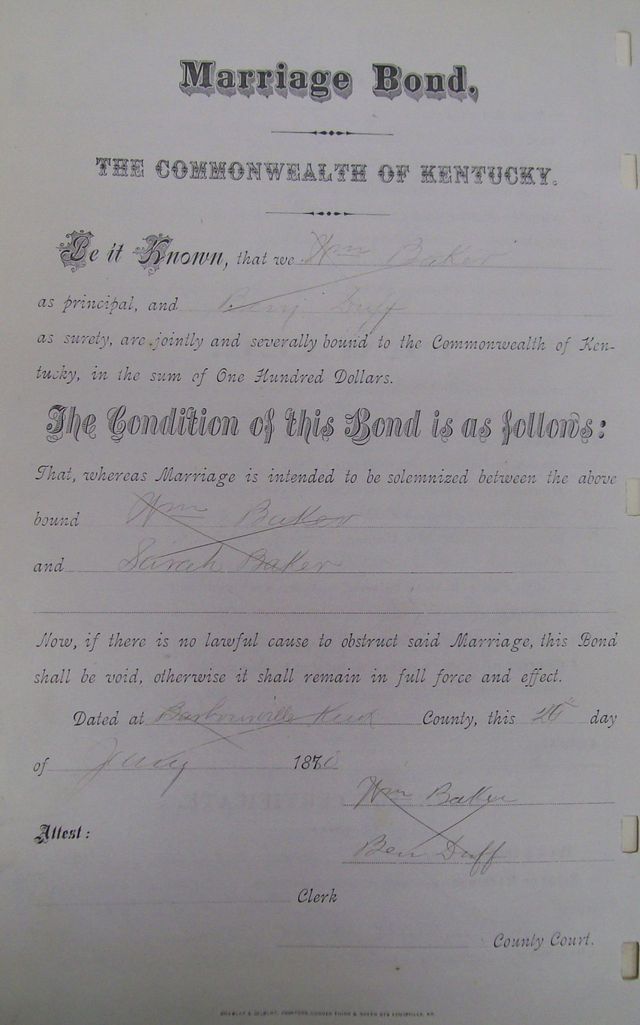 Marriage Bond,
THE COMMONWEALTH OF KENTUCKY.
Be it Known, that we Wm Baker
as principal, and Benj Duff
as surety, are jointly and severally bound to the Commonwealth of Ken-
tucky, in the sum of One Hundred Dollars.
The Condition of this Bond is as follows:
That, whereas Marriage is intended to be solemnized between the above
bound Wm Baker
and Sarah Baker
Now, if there is no lawful cause to obstruct said Marriage, this Bond
shall be void, otherwise it shall remain in full force and effect.
Dated at Barbourville County, this day
of 187
Wm Baker
Attest:
Ben Duff
Clerk
County Court.